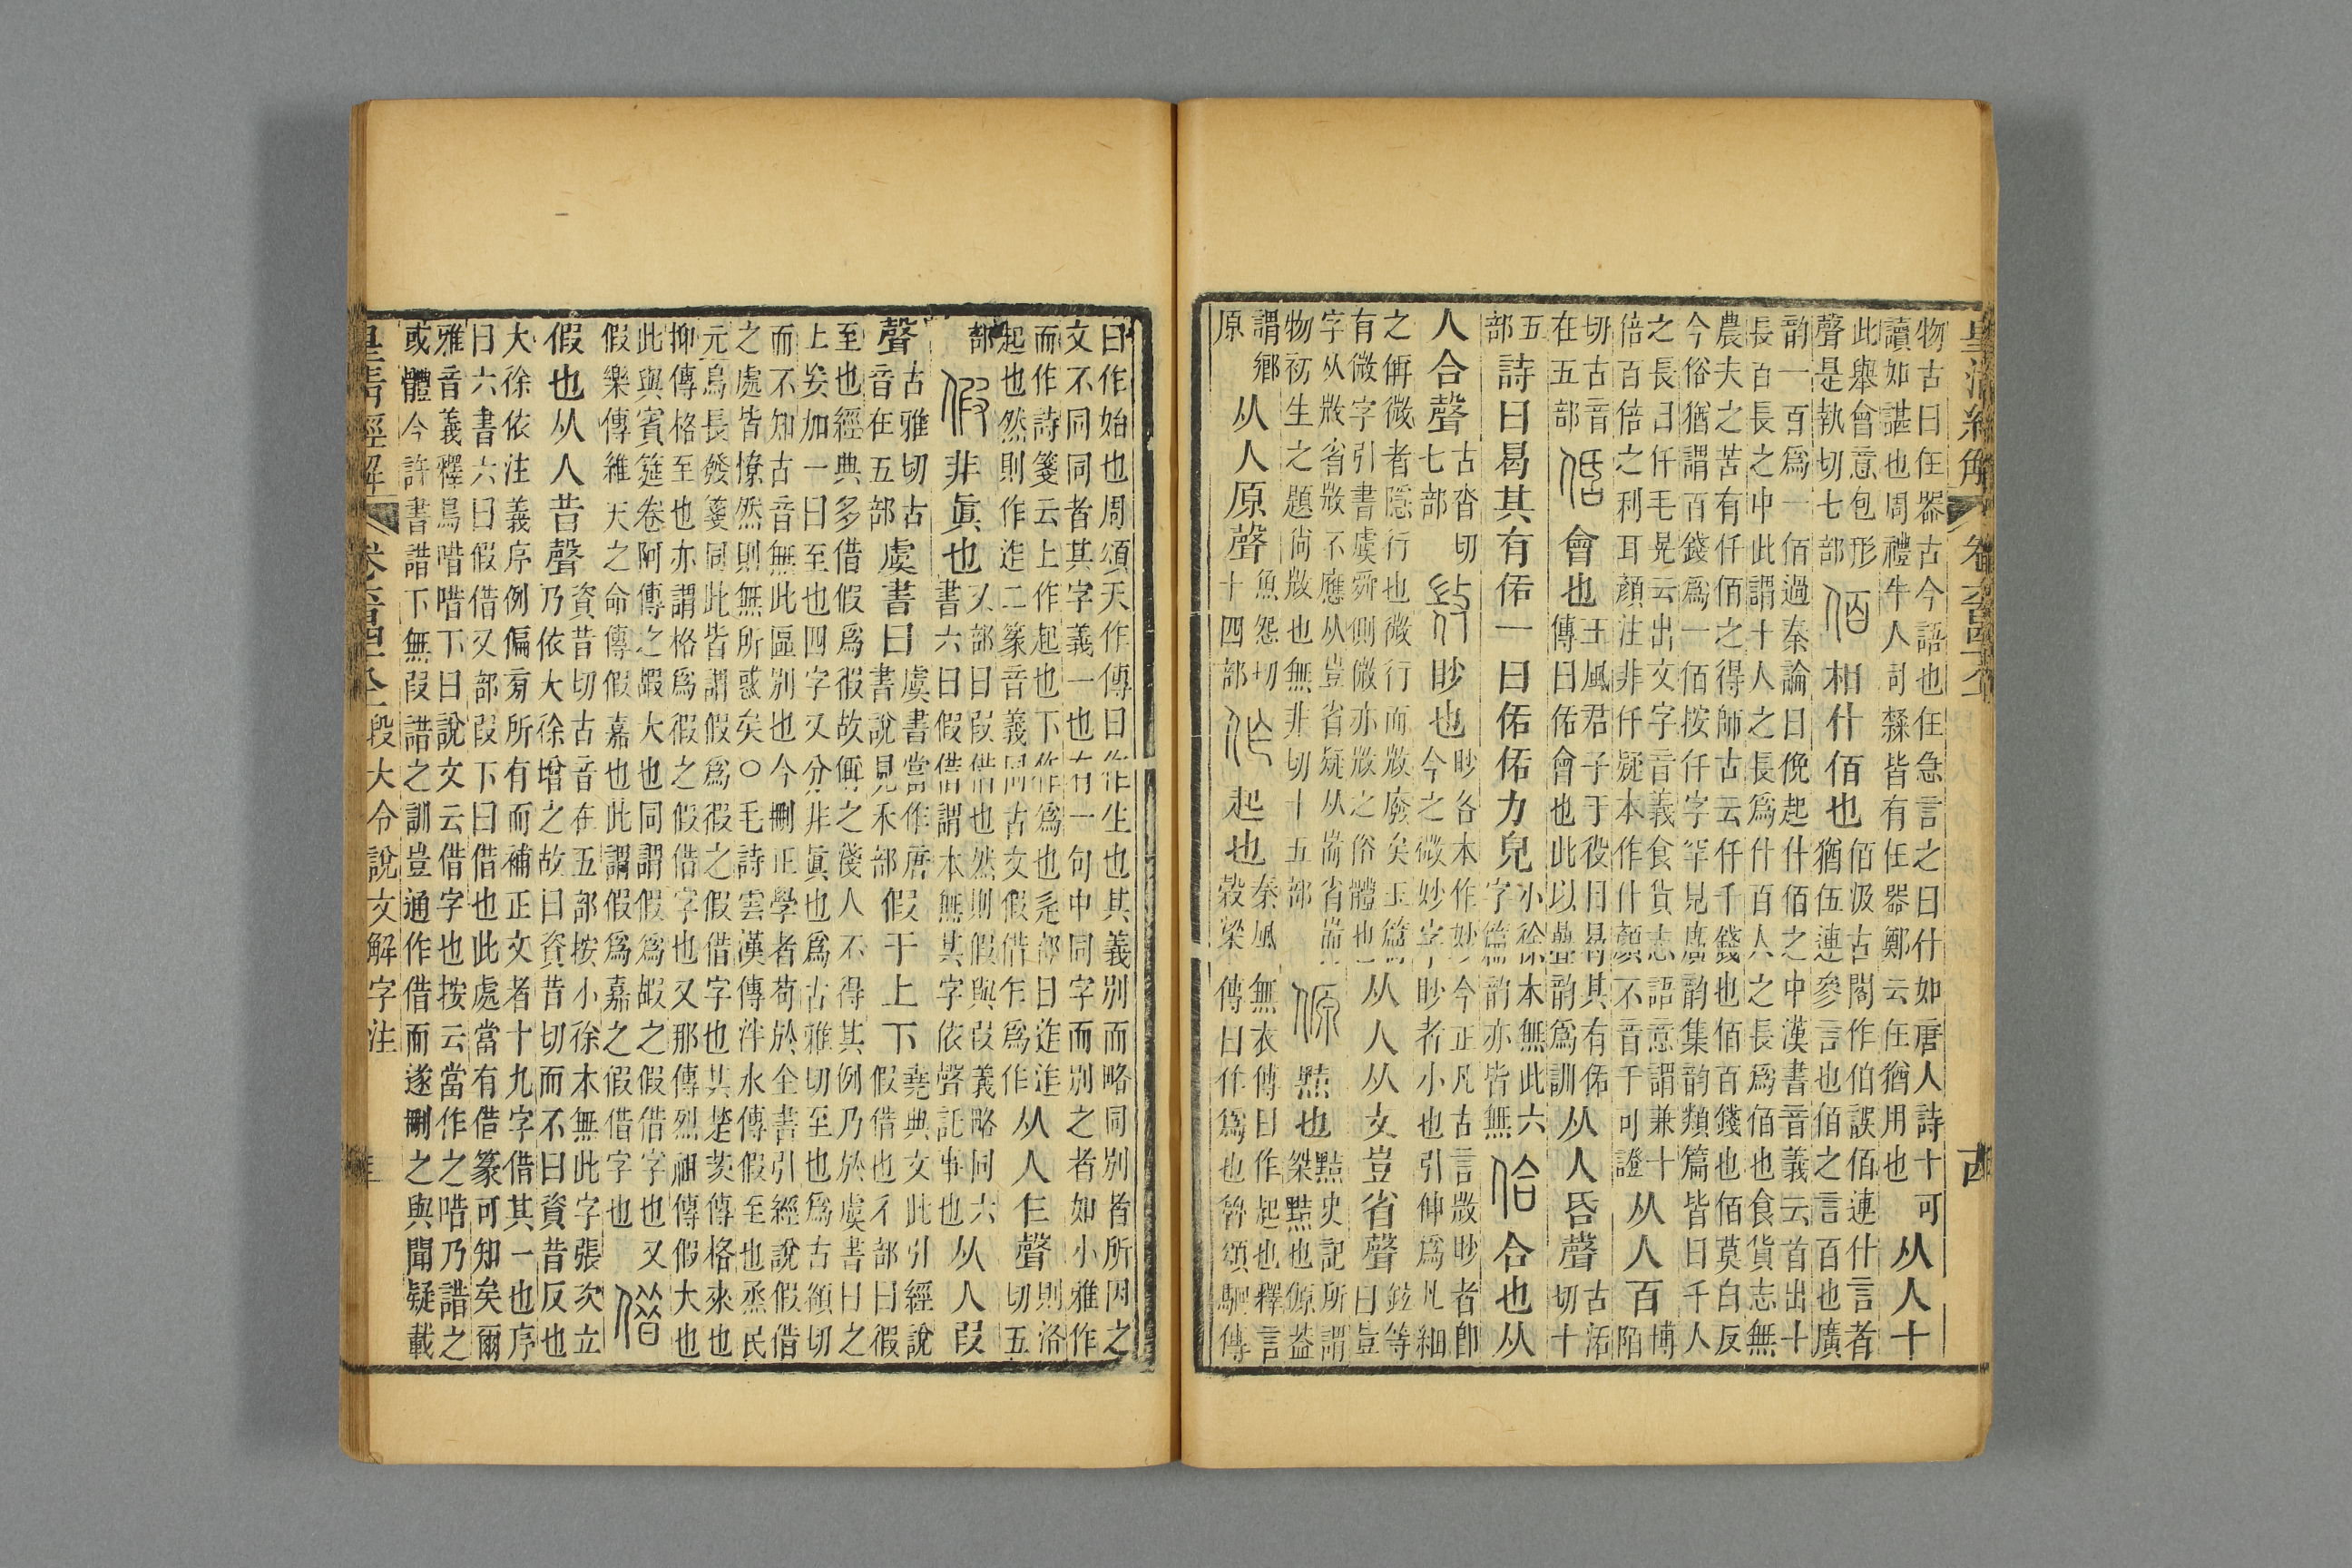 物古曰任器古今語也任急言之曰什如唐人詩十可
讀如諶也周禮牛人司隸皆有任器鄭云任猶用也
从人十
此舉會意包形
聲是執切七部
佰相什佰也
佰汲古閣作伯誤佰連什言者
猶伍連參言也佰之言百也廣
韵一百爲一佰過秦論曰俛起什佰之中漢書音義云首出十
長百長之中此謂十人之長爲什百人之長爲佰也食貨志無
農夫之苦有仟佰之得師古云仟千錢也佰百錢也佰莫白反
今俗猶謂百錢爲一佰按仟字罕見廣韵集韵類篇皆曰千人
之長曰仟毛晃云出文字音義食貨志語意謂兼十
倍百倍之利耳顏注非仟疑本作什顏不音千可證
从人百
博
陌
切古音
在五部
佸會也
王風君子于役曰曷其有佸
傳曰佸會也此以疊韵爲訓
从人昏聲
古活
切十
五
部
詩曰曷其有佸一曰佸佸力皃
小徐本無此六
字篇韵亦皆無
佮合也从
人合聲
古沓切
七部
眇也
眇各本作妙今正凡古言𢼸眇者卽
今之微妙字眇者小也引伸爲凡細
之偁微者隱行也微行而𢼸廢矣玉篇
有微字引書虞舜側微亦𢼸之俗體也
从人从攴豈省聲
鉉等
曰豈
字从𢼸省𢼸不應从豈省疑从耑省耑
物初生之題尚𢼸也無非切十五部
傆黠也
黠史記所謂
桀黠也傆蓋
謂鄕
原
从人原聲
魚怨切
十四部
作起也
秦風無衣傳曰作起也釋言
穀梁傳曰作爲也魯頌駉傳
皇清經解
古
曰作始也周頌天作傳曰作生也其義別而略同別者所因之
文不同同者其字義一也有一句中同字而別之者如小雅作
而作詩箋云上作起也下作爲也辵部曰迮迮
起也然則作迮二篆音義同古文假借乍爲作
从人乍聲
則洛
切五
部
假非眞也
又部曰叚借也然則假與叚義略同六
書六曰假借謂本無其字依聲託事也
从人叚
聲
古雅切古
音在五部
虞書曰
虞書當作唐
書說見禾部
假于上下
堯典文此引經說
假借也彳部曰徦
至也經典多借假爲徦故偁之淺人不得其例乃於虞書曰之
上妄加一曰至也四字又分非眞也爲古雅切至也爲古頟切
而不知古音無此區別也今刪正學者苟於全書引經說假借
之處皆憭然則無所惑矣○毛詩雲漢傳泮水傳假至也烝民
元鳥長發箋同此皆謂假爲徦之假借字也其楚茨傳格來也
抑傳格至也亦謂格爲徦之假借字也又那傳烈祖傳假大也
此與賓筵卷阿傳之嘏大也同謂假爲嘏之假借字也又
假樂傳維天之命傳假嘉也此謂假爲嘉之假借字也
借
假也从人昔聲
資昔切古音在五部按小徐本無此字張次立
乃依大徐增之故曰資昔切而不曰資昔反也
大徐依注義序例偏旁所有而補正文者十九字借其一也序
曰六書六曰假借又部叚下曰借也此處當有借篆可知矣爾
雅音義釋鳥唶唶下曰說文云借字也按云當作之唶乃諎之
或體今許書諎下無叚諎之訓豈通作借而遂刪之與聞疑載
皇清經解
段大令說文解字注